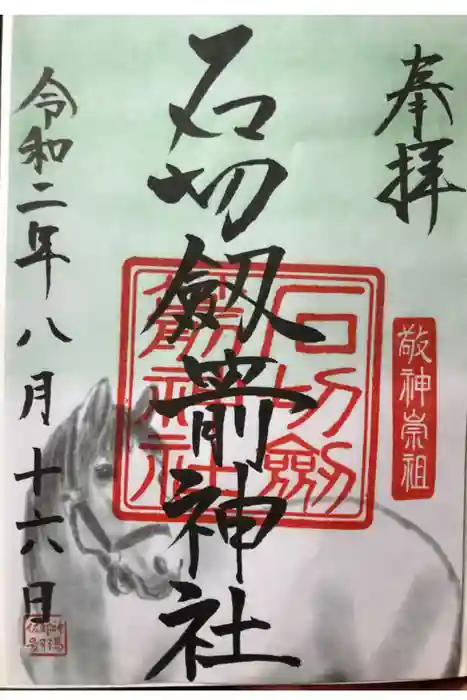 奉拝
敬神崇祖
石切劔箭神社
石切劔
箭神社
令和二年八月十六日